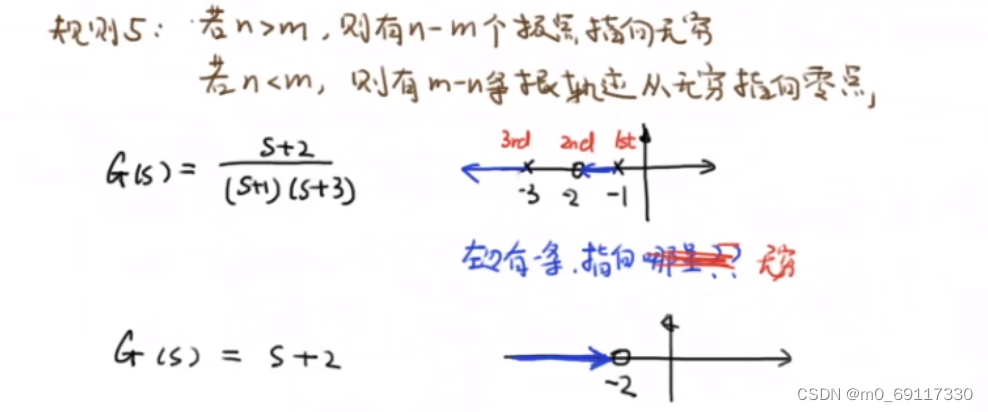 规则5: 若n>m,则有n-m个极点指向无穷
若n<m,则有m-n条根轨迹从无穷指向零点,
G(s) = s+2 / (s+1)(s+3)
3rd 2nd 1st
-3 -2 -1
左边有一条,指向哪里?? 无穷
G(s) = s+2
-2
CSDN @m0_69117330